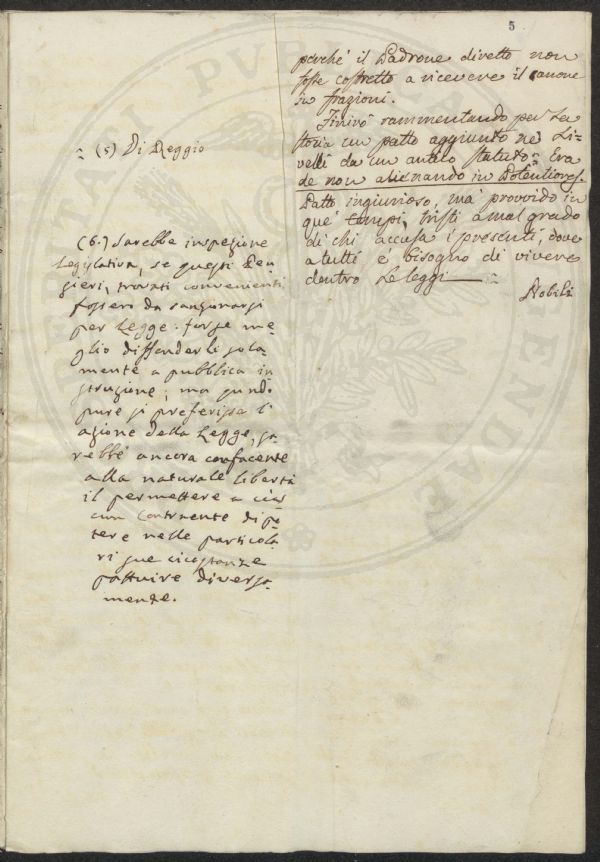 5
perché il Padrone diretto non
fosse costretto a ricevere il canone
in frazioni.
Finirò rammentando per la
storia un patto aggiunto ne' Li-
velli da un antico statuto: Era
de non alienando in Potentiores.
Patto ingiurioso, ma provvido in
que' tempi, tristi a mal grado
di chi accusa i presenti, dove
a tutti è bisogno di vivere
dentro le leggi
Nobili
(5) Di Reggio
(6.) Sarebbe inspezione
Legislativa, se questi Pen-
sieri, trovati convenienti
fossero da sanzionarsi
per Legge: forse me-
glio diffonderli sola-
mente a pubblica in-
struzione; ma quando
pure si preferisse l'
azione della Legge, sa-
rebbe ancora confacente
alla naturale libertà
il permettere a cias-
cun Contraente di po-
tere nelle particola-
ri sue circostanze
pattuire diversa-
mente.
PUBLICA